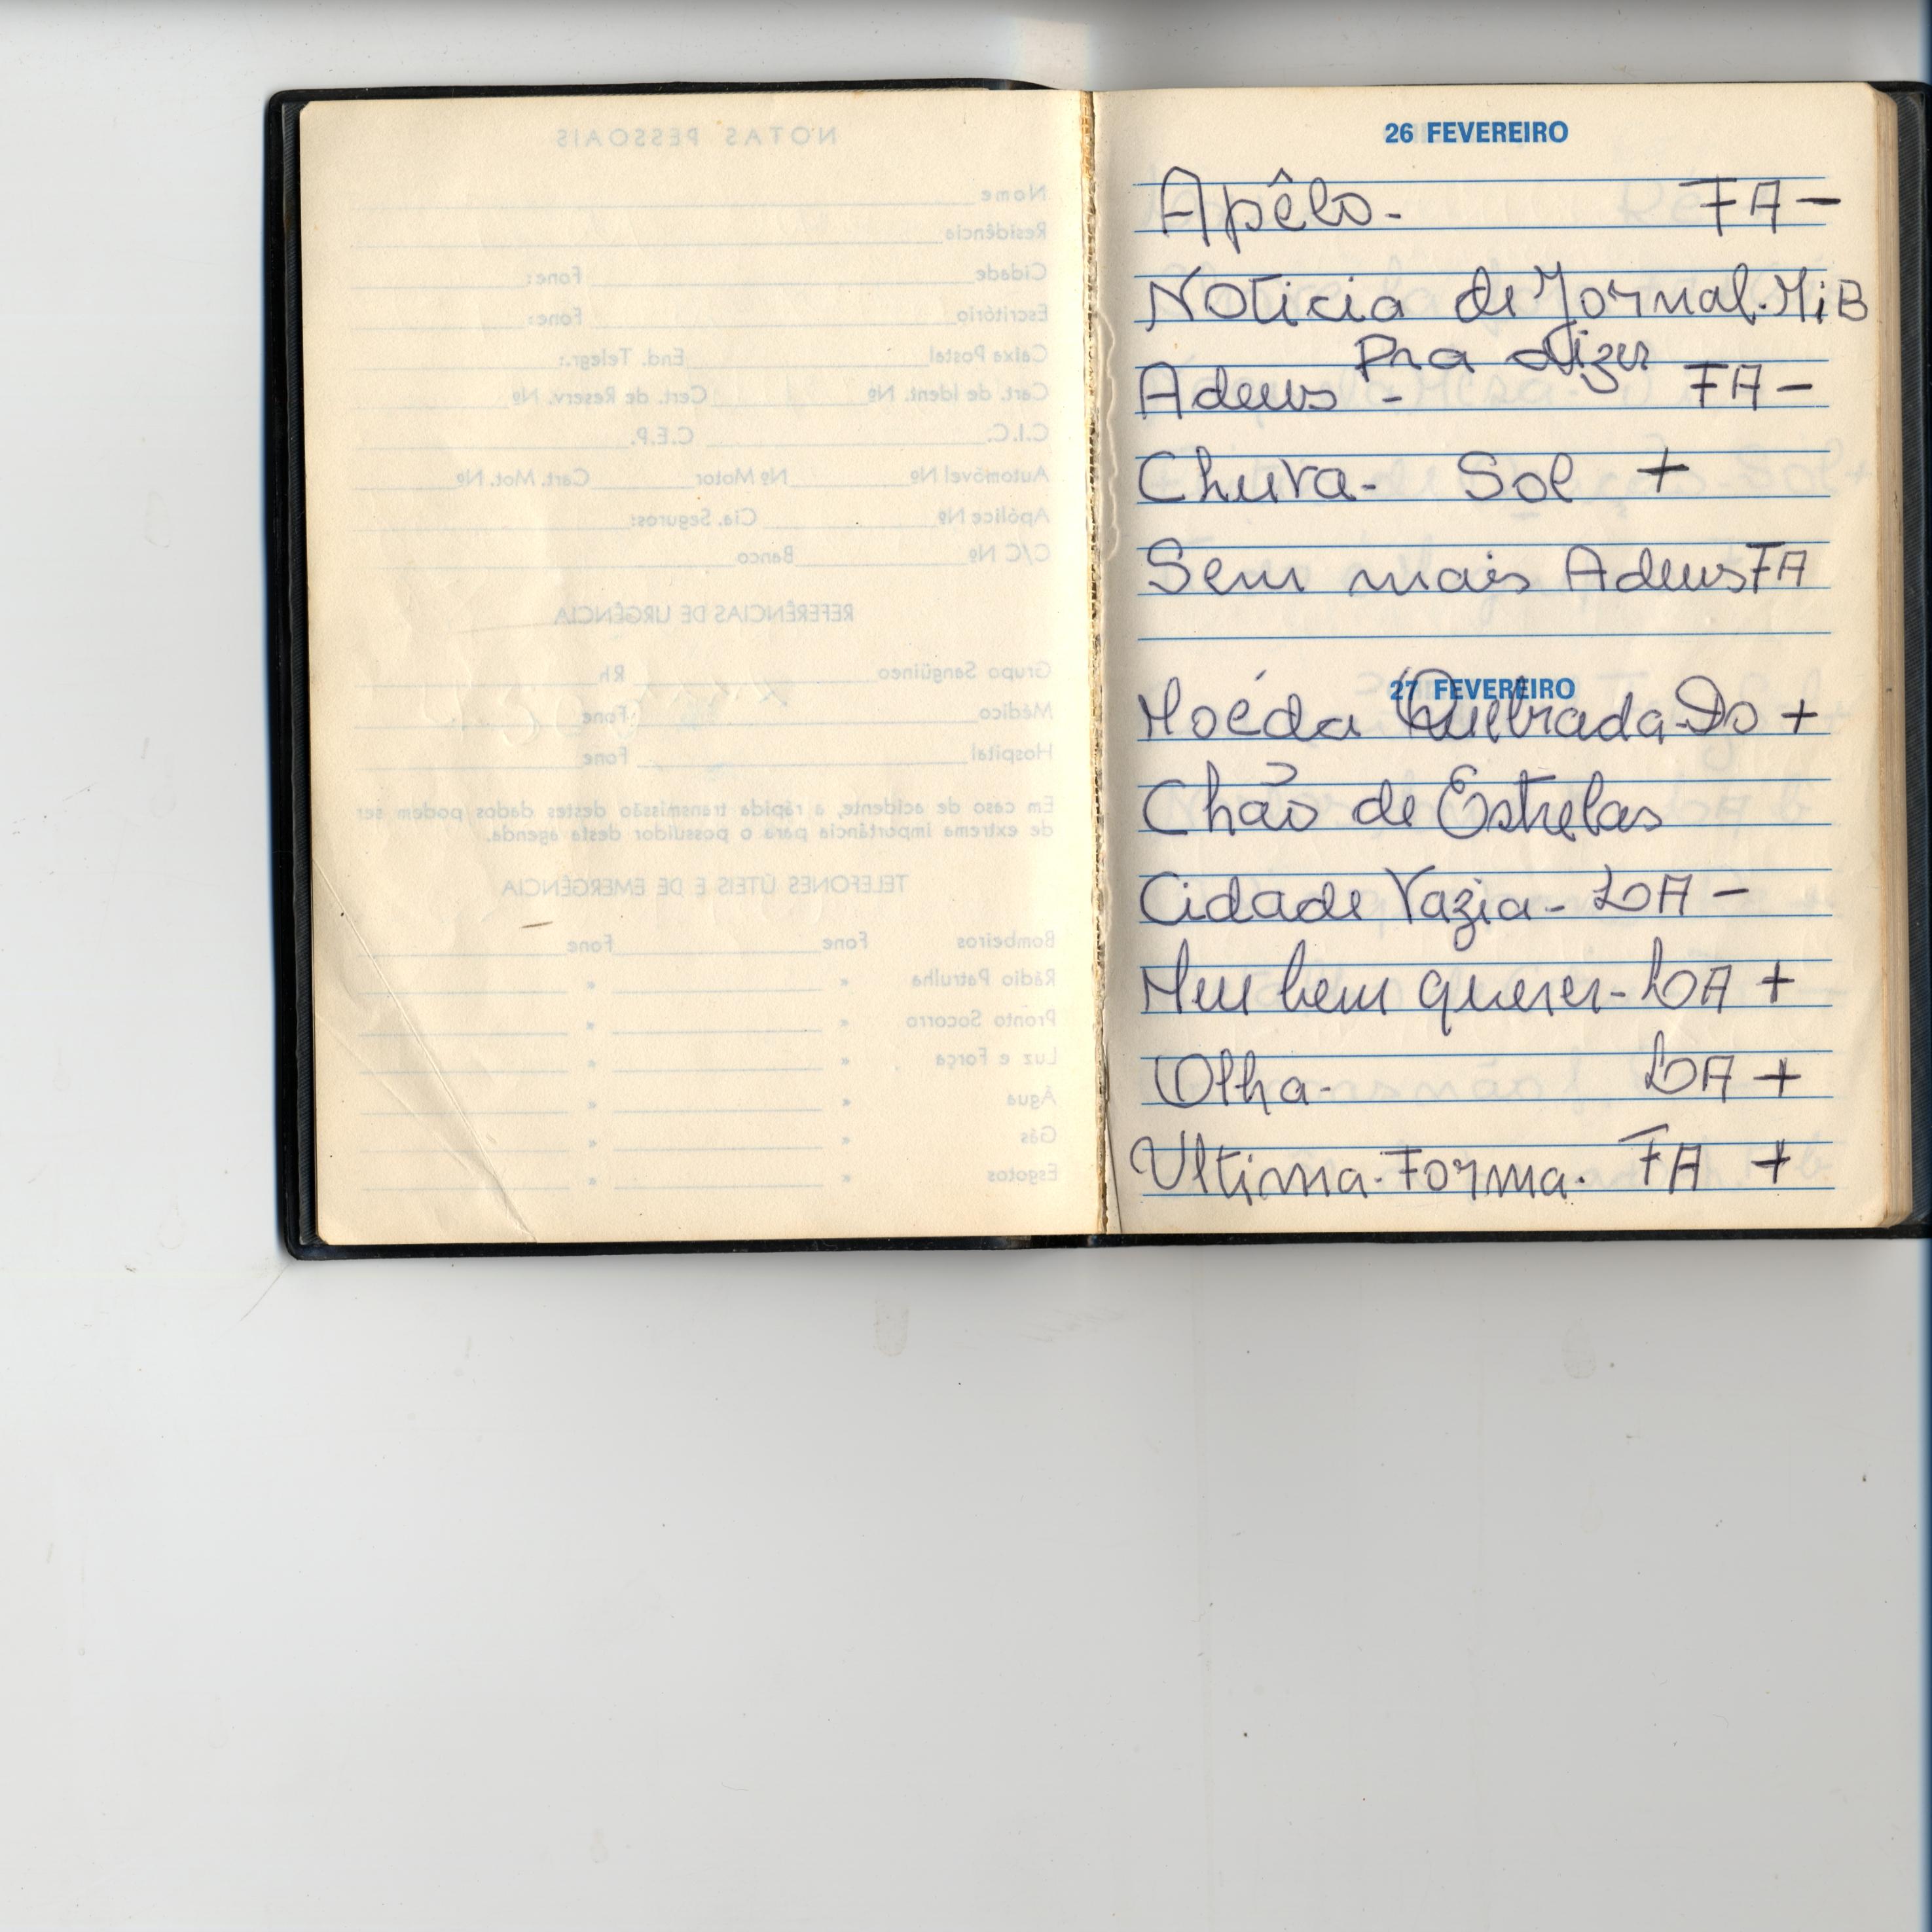 NOTAS PESSOAIS
Nome
Residência
Cidade Fone:
Escritório Fone:
Caixa Postal End. Telegr.:
Cart. de Ident. Nº Cert. de Reserv. Nº
C.I.C. C.E.P.
Automóvel Nº Nº Motor Cart. Mot. Nº
Apólice Nº Cia. Seguros:
C/C Nº Banco
REFERÊNCIAS DE URGÊNCIA
Grupo Sangüíneo Rh
Médico Fone
Hospital Fone
Em caso de acidente, a rápida transmissão destes dados podem ser
de extrema importância para o possuidor desta agenda.
TELEFONES ÚTEIS E DE EMERGÊNCIA
Bombeiros Fone Fone
Rádio Patrulha " "
Pronto Socorro " "
Luz e Força " "
Água " "
Gás " "
Esgotos " "
26 FEVEREIRO
Apêlo - FA -
Noticia de Jornal. MiB
Pra dizer
Adeus - FA -
Chuva - Sol +
Sem mais Adeus FA
27 FEVEREIRO
Moéda Quebrada - Do +
Chão de Estrelas
Cidade Vazia - LA -
Meu bem querer - LA +
Olha - LA +
Ultima. Forma. FA +